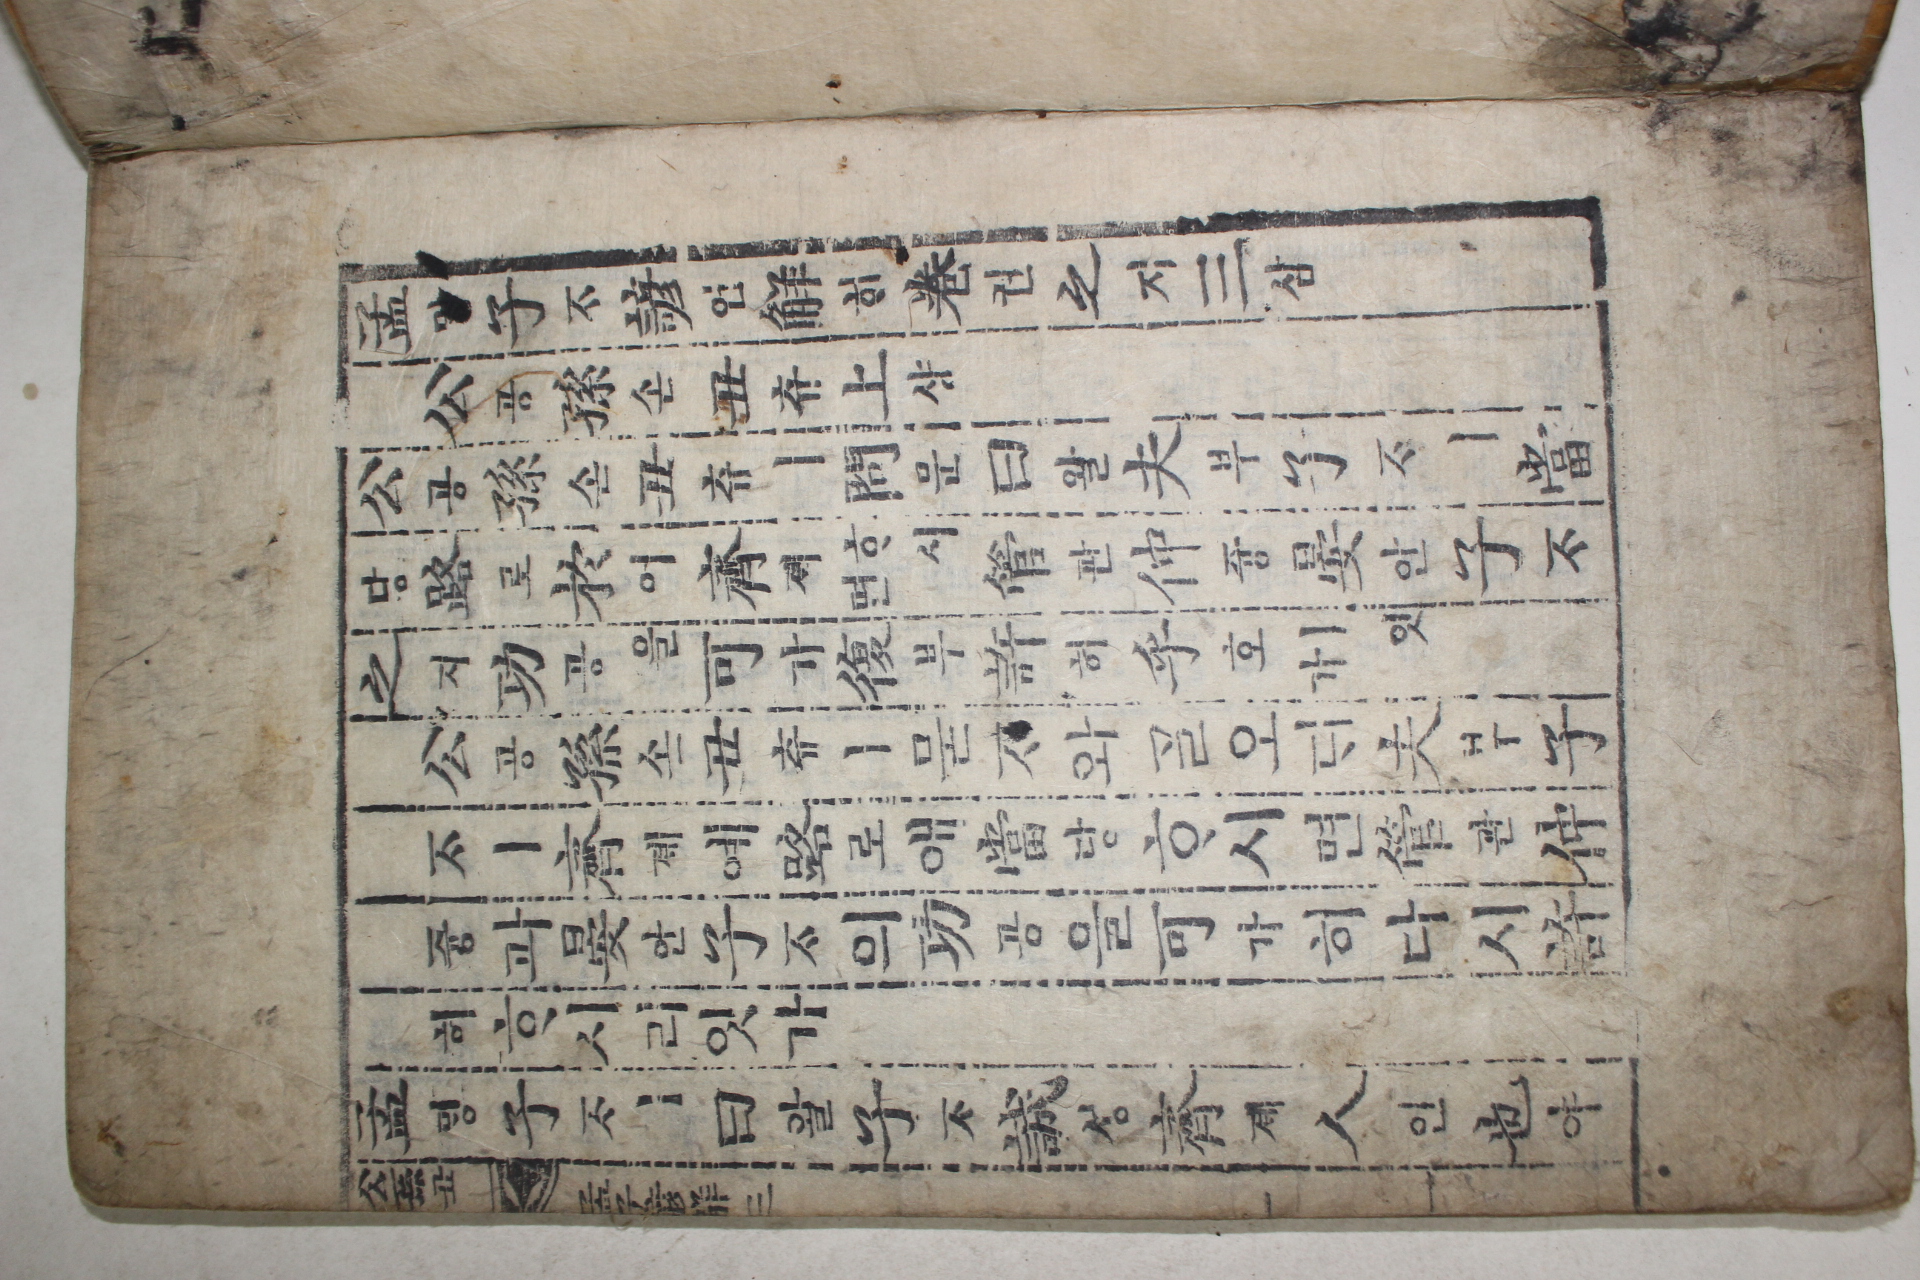 孟子ᄌᆞ諺언解ᄒᆡ卷권之지三삼
公공孫손丑츄上샹
公공孫손丑츄ㅣ問문曰왈夫부子ᄌᆞㅣ當
당路로於어齊졔ᄒᆞ시면管관仲즁晏안子ᄌᆞ
之지功공을可가復부許허乎호ㅣ잇가
公공孫손丑츄ㅣ묻ᄌᆞ와ᄀᆞᆯ오ᄃᆡ夫부子
ᄌᆞㅣ齊졔예路로애當당ᄒᆞ시면管관仲
즁과晏안子ᄌᆞ의功공을可가히다시許
허ᄒᆞ시리잇가
孟ᄆᆡᆼ子ᄌᆞㅣ曰왈子ᄌᆞ誠셩齊졔人인也야
公孫丑
孟子諺解 三